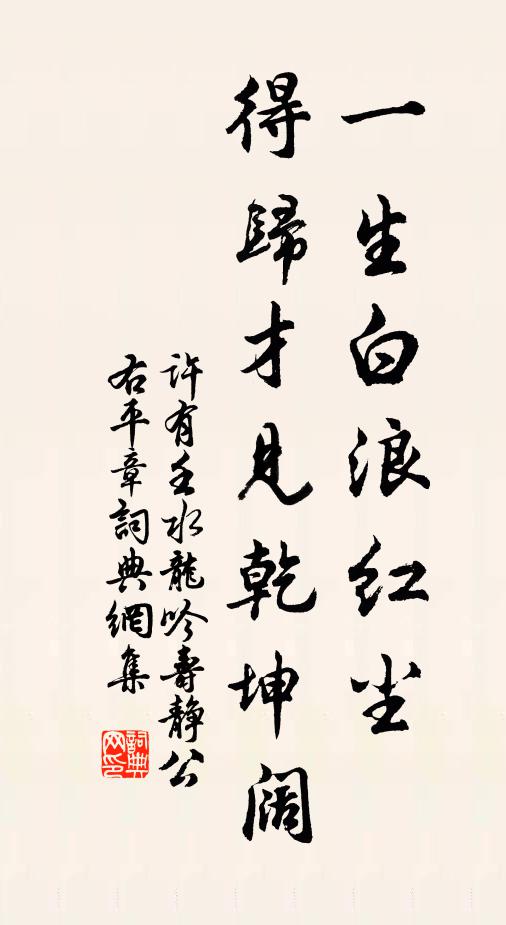 一生白浪红尘
得歸才見乾坤阔
許有壬水龍吟壽静公
右平章詞典網集
詞典
网印